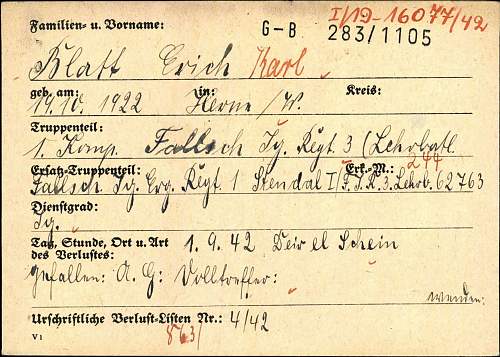 I/19-16077/42
Familien- u. Vorname: G-B 283/1105
Blatt Erich Karl
geb. am: in: Kreis:
19.10.1922 Herne /W.
Truppenteil:
1. Komp. Fallsch Jg. Regt. 3 (Lehrbatl.
Ersatz-Truppenteil: Erk.-M.: 244
Fallsch. Jg. Erg. Regt. 1 Stendal I/F.J.R.3.Lehrb. 62763
Dienstgrad:
Jg.
Tag, Stunde, Ort u. Art des Verlustes: 1.9.42 Deir el Schein
gefallen: A.G: Volltreffer:
wenden:
Urschriftliche Verlust-Listen Nr.: 4/42
V1 863/